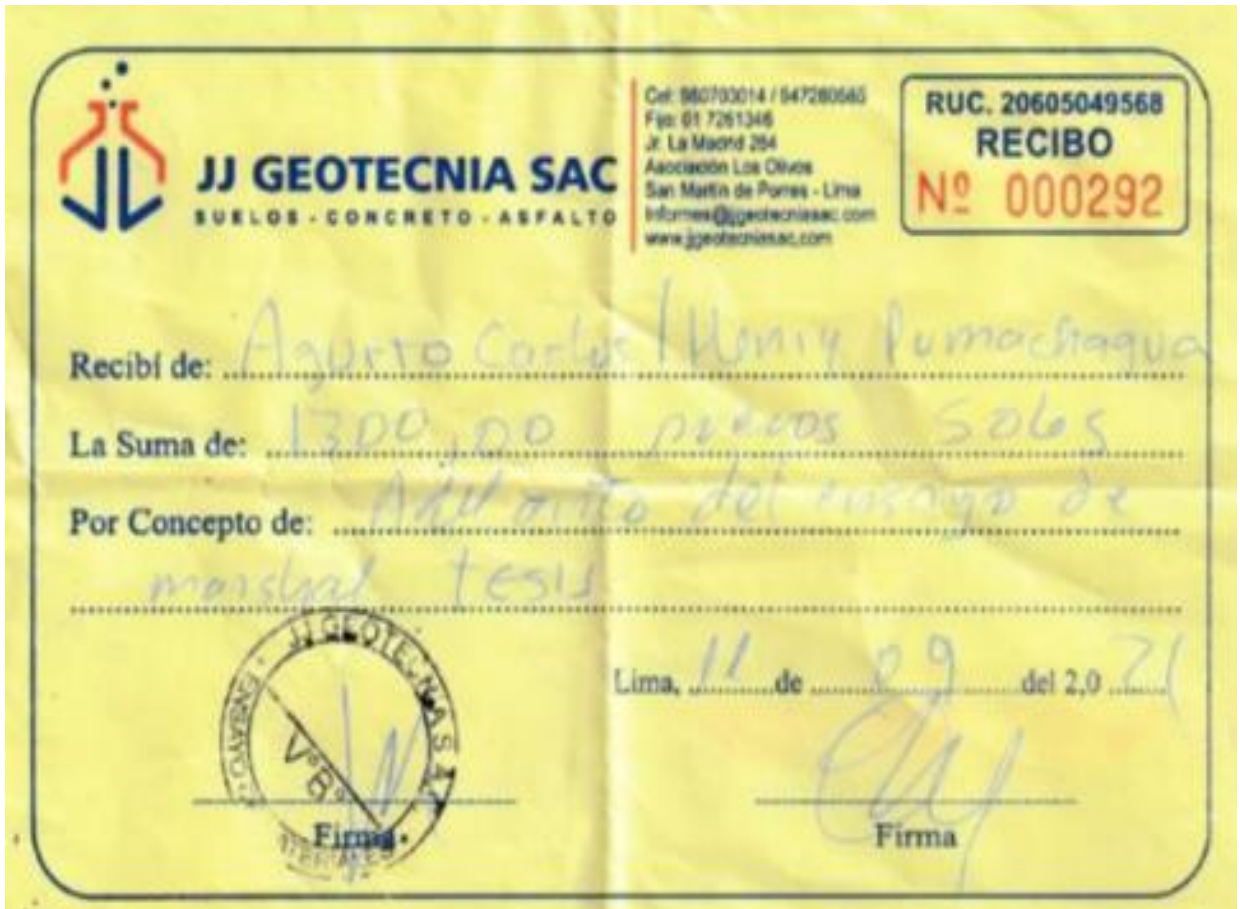 JJ GEOTECNIA SAC
SUELOS - CONCRETO - ASFALTO
Cel: 980703014 / 947280565
Fijo: 01 7261346
Jr. La Madrid 264
Asociación Los Olivos
San Martín de Porres - Lima
Informes@jjgeotecniasac.com
www.jjgeotecniasac.com
RUC. 20605049568
RECIBO
Nº 000292
Recibí de: Agurto Carlos / Henry Pumachagua
La Suma de: 1300,00 nuevos soles
Por Concepto de: del ensayo de
marshal tesis
Lima, 11 de 09 del 2,0 21
JJ GEOTECNIA SAC
VºBº
Firma
Firma